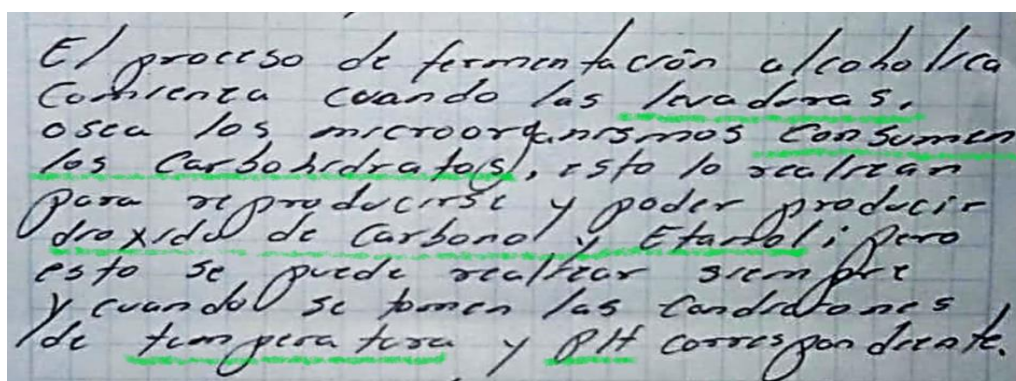 El proceso de fermentación alcoholica
Comienza cuando las levaduras,
osea los microorganismos consumen
los Carbohidratos, esto lo realizan
para reproducirse y poder producir
dioxido de Carbono y Etanol; pero
esto se puede realizar siempre
y cuando se tomen las Condiciones
de temperatura y PH correspondiente.